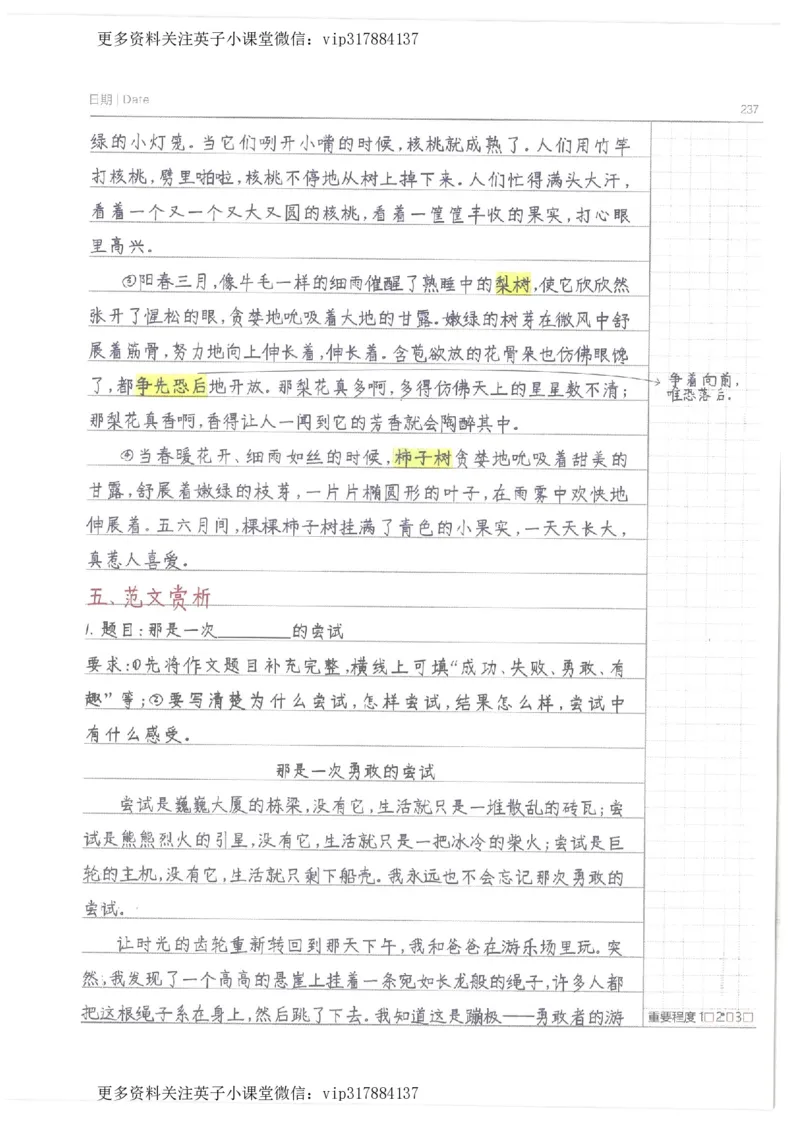 更多资料关注英子小课堂微信：vip317884137
日期 | Date
237
绿的小灯笼。当它们咧开小嘴的时候，核桃就成熟了。人们用竹竿
打核桃，劈里啪啦，核桃不停地从树上掉下来。人们忙得满头大汗，
看着一个又一个又大又圆的核桃，看着一筐筐丰收的果实，打心眼
里高兴。
③阳春三月，像牛毛一样的细雨催醒了熟睡中的梨树，使它欣欣然
张开了惺松的眼，贪婪地吮吸着大地的甘露。嫩绿的树芽在微风中舒
展着筋骨，努力地向上伸长着，伸长着。含苞欲放的花骨朵也仿佛眼馋
了，都争先恐后地开放。那梨花真多啊，多得仿佛天上的星星数不清；
争着向前，
唯恐落后。
那梨花真香啊，香得让人一闻到它的芳香就会陶醉其中。
④当春暖花开、细雨如丝的时候，柿子树贪婪地吮吸着甜美的
甘露，舒展着嫩绿的枝芽，一片片椭圆形的叶子，在雨雾中欢快地
伸展着。五六月间，棵棵柿子树挂满了青色的小果实，一天天长大，
真惹人喜爱。
五、范文赏析
1. 题目：那是一次________的尝试
要求：①先将作文题目补充完整，横线上可填“成功、失败、勇敢、有
趣”等；②要写清楚为什么尝试，怎样尝试，结果怎么样，尝试中
有什么感受。
那是一次勇敢的尝试
尝试是巍巍大厦的栋梁，没有它，生活就只是一堆散乱的砖瓦；尝
试是熊熊烈火的引星，没有它，生活就只是一把冰冷的柴火；尝试是巨
轮的主机，没有它，生活就只剩下船壳。我永远也不会忘记那次勇敢的
尝试。
让时光的齿轮重新转回到那天下午，我和爸爸在游乐场里玩。突
然，我发现了一个高高的悬崖上挂着一条宛如长龙般的绳子，许多人都
把这根绳子系在身上，然后跳了下去。我知道这是蹦极——勇敢者的游
重要程度 1□2□3□
更多资料关注英子小课堂微信：vip317884137